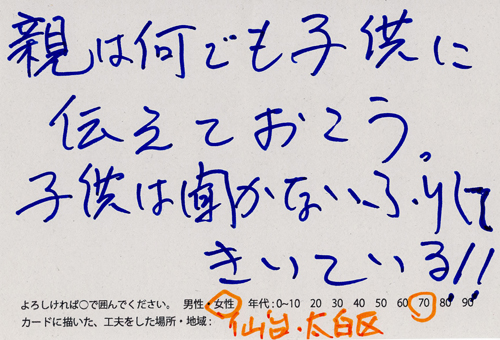 親は何でも子供に
伝えておこう。
子供は聞かないふりして
きいている!!
よろしければ○で囲んでください。 男性・女性 年代:0~10 20 30 40 50 60 70 80 90
カードに描いた、工夫をした場所・地域: 仙台・太白区